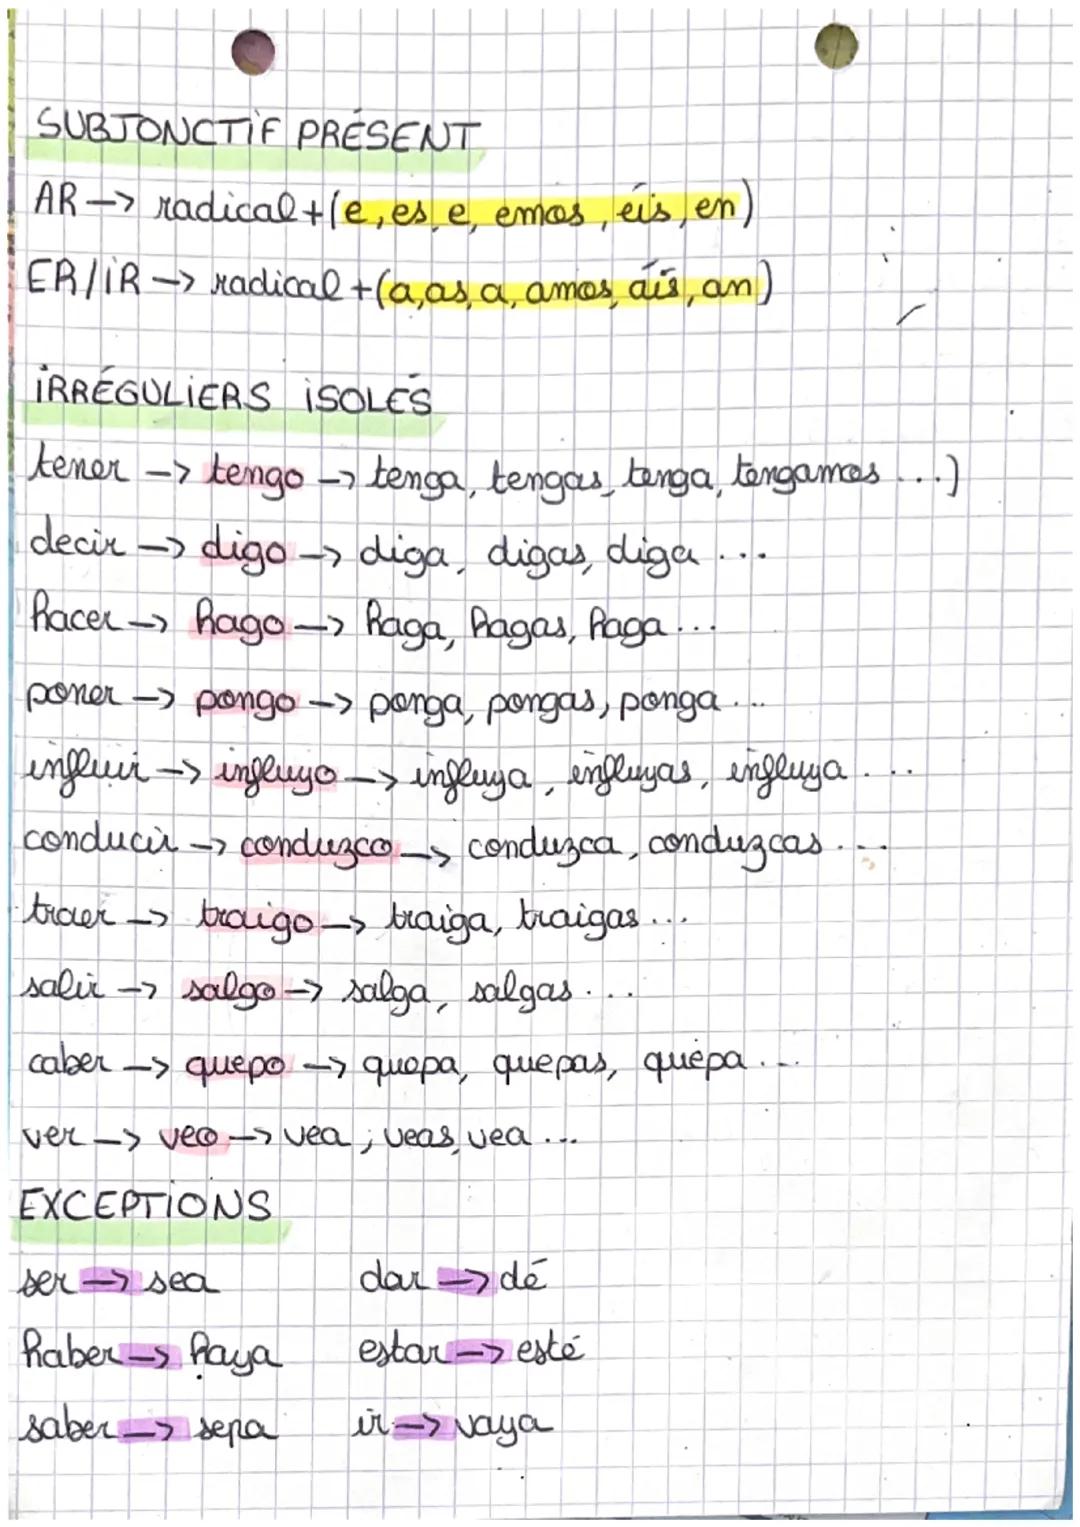 SUBJONCTIF PRÉSENT
AR -> radical + (e, es, e, emos, éis, en)
ER/IR -> radical + (a, as, a, amos, áis, an)
IRRÉGULIERS ISOLÉS
tener -> tengo -> tenga, tengas, tenga, tengamos ...)
decir -> digo -> diga, digas, diga ...
hacer -> hago -> haga, hagas, haga ...
poner -> pongo -> ponga, pongas, ponga ...
influir -> influyo -> influya, influyas, influya ...
conducir -> conduzco -> conduzca, conduzcas ...
traer -> traigo -> traiga, traigas ...
salir -> salgo -> salga, salgas ...
caber -> quepo -> quepa, quepas, quépa ...
ver -> veo -> vea ; veas, vea ...
EXCEPTIONS
ser -> sea dar -> dé
haber -> haya estar -> esté
saber -> sepa ir -> vaya